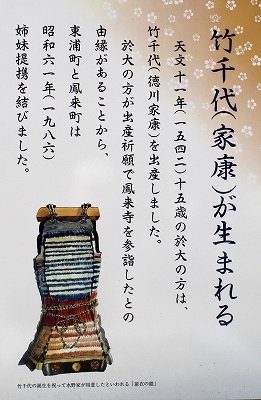 竹千代(家康)が生まれる
天文十一年(一五四二)十五歳の於大の方は、
竹千代(徳川家康)を出産しました。
於大の方が出産祈願で鳳来寺を参詣したとの
由縁があることから、
東浦町と鳳来町は
昭和六一年(一九八六)
姉妹提携を結びました。
竹千代の誕生を祝って水野家が用意したといわれる「産衣の鎧」